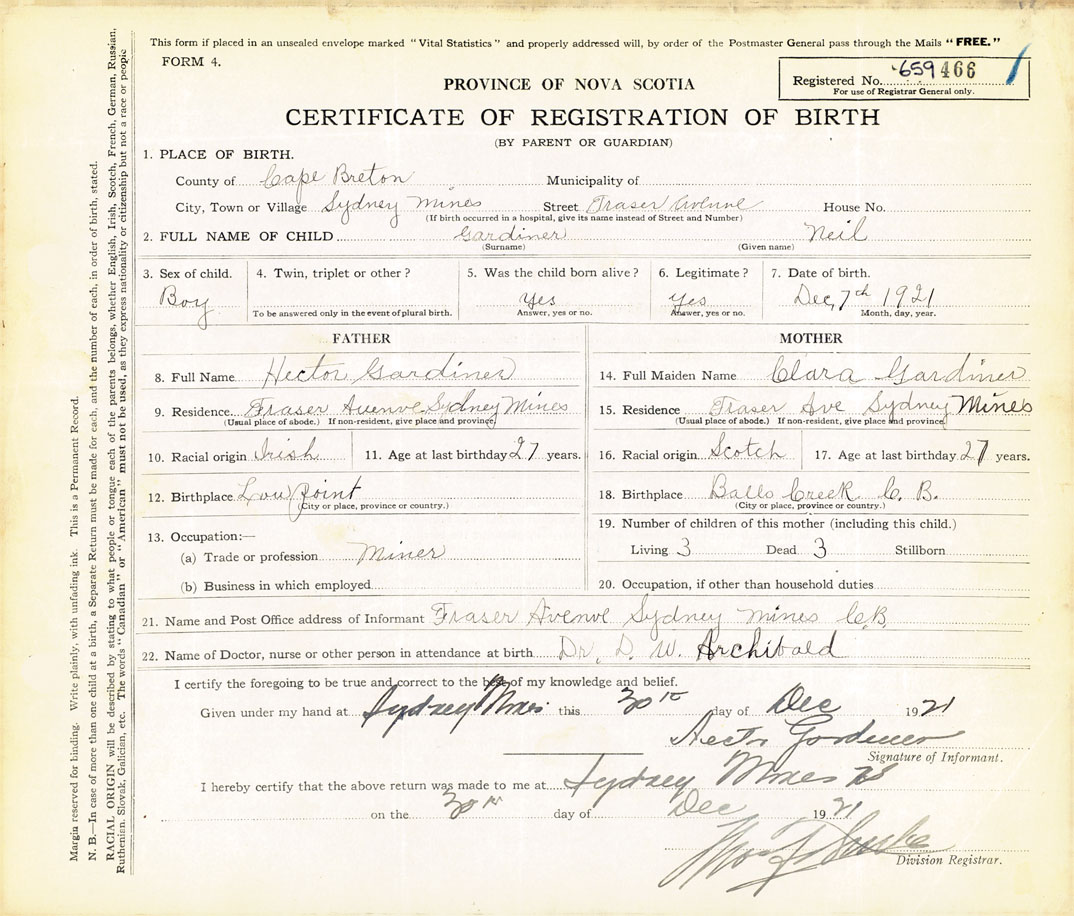 This form if placed in an unsealed envelope marked "Vital Statistics" and properly addressed will, by order of the Postmaster General pass through the Mails "FREE."
FORM 4.
Registered No. 659 466
For use of Registrar General only.
PROVINCE OF NOVA SCOTIA
CERTIFICATE OF REGISTRATION OF BIRTH
(BY PARENT OR GUARDIAN)
1. PLACE OF BIRTH.
County of Cape Breton Municipality of
City, Town or Village Sydney Mines Street Fraser Avenue House No.
(If birth occurred in a hospital, give its name instead of Street and Number)
2. FULL NAME OF CHILD Gardiner Neil
(Surname) (Given name)
3. Sex of child. 4. Twin, triplet or other? 5. Was the child born alive? 6. Legitimate? 7. Date of birth.
Boy Yes Yes Dec, 7th 1921
To be answered only in the event of plural birth. Answer, yes or no. Answer, yes or no. Month, day, year.
FATHER MOTHER
8. Full Name Hector Gardiner 14. Full Maiden Name Clara Gardiner
9. Residence Fraser Avenve Sydney Mines 15. Residence Fraser Ave Sydney Mines
(Usual place of abode.) If non-resident, give place and province, (Usual place of abode.) If non-resident, give place and province,
10. Racial origin Irish 11. Age at last birthday 27 years. 16. Racial origin Scotch 17. Age at last birthday 27 years.
12. Birthplace Low Point 18. Birthplace Balls Creek C. B.
(City or place, province or country.) (City or place, province or country.)
13. Occupation:— 19. Number of children of this mother (including this child.)
(a) Trade or profession Miner Living 3 Dead 3 Stillborn
(b) Business in which employed 20. Occupation, if other than household duties
21. Name and Post Office address of Informant Fraser Avenve Sydney Mines C.B.
22. Name of Doctor, nurse or other person in attendance at birth Dr, D. W. Archibald
I certify the foregoing to be true and correct to the best of my knowledge and belief.
Given under my hand at Sydney Mines this 30th day of Dec 1921
Hector Gardiner
Signature of Informant.
I hereby certify that the above return was made to me at Sydney Mines NS
on the 30th day of Dec 1921
Division Registrar.
Margin reserved for binding. Write plainly, with unfading ink. This is a Permanent Record.
N. B.—In case of more than one child at a birth, a Separate Return must be made for each, and the number of each, in order of birth, stated.
RACIAL ORIGIN will be described by stating to what people or tongue each of the parents belongs, whether English, Irish, Scotch, French, German, Russian,
Ruthenian, Slovak, Galician, etc. The words "Canadian" or "American" must not be used, as they express nationality or citizenship but not a race or people